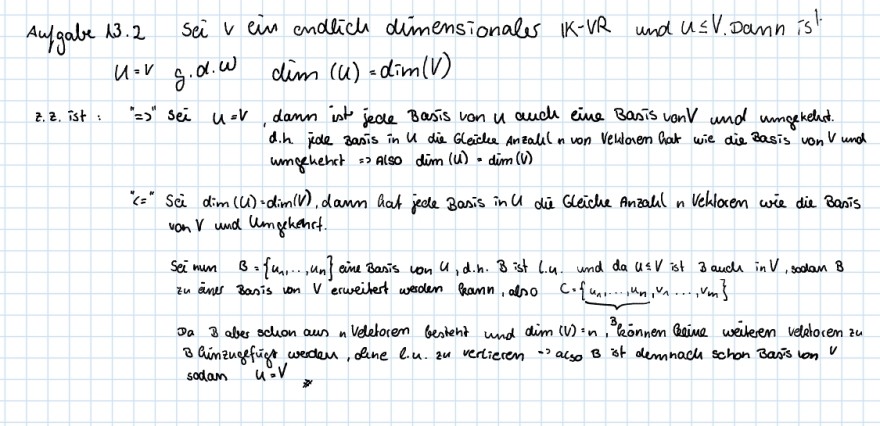 Aufgabe 13.2 Sei V ein endlich dimensionaler IK-VR und U≤V. Dann ist
U=V g.d.w dim (U) = dim(V)
z.z. ist : "=>" Sei U=V, dann ist jede Basis von U auch eine Basis von V und umgekehrt.
d.h. jede Basis in U die Gleiche Anzahl n von Vektoren hat wie die Basis von V und
umgekehrt => Also dim (U) = dim(V)
"<=" Sei dim(U)=dim(V), dann hat jede Basis in U die Gleiche Anzahl n Vektoren wie die Basis
von V und Umgekehrt.
Sei nun B = {u₁,..,uₙ} eine Basis von U, d.h. B ist l.u. und da U≤V ist B auch in V, sodass B
zu einer Basis von V erweitert werden kann, also C = {u₁,...,uₙ,v₁ ...,vₘ}
B
Da B aber schon aus n Vektoren besteht und dim(V)=n, können keine weiteren Vektoren zu
B hinzugefügt werden, ohne l.u. zu verlieren -> also B ist demnach schon Basis von V
sodass U=V